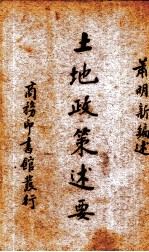 蕭明新編述
土地政策述要
商務印書館發行